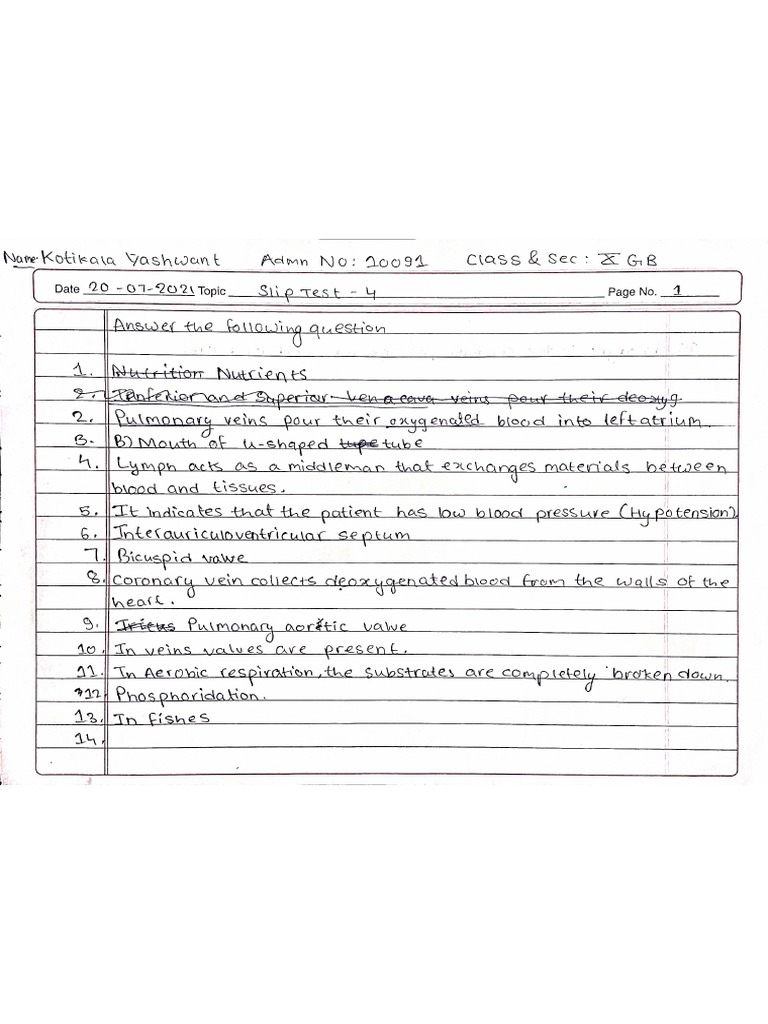 Name- Kotikala Yashwant Admn No: 10091 Class & Sec : X GB
Date 20-07-2021 Topic Slip Test - 4 Page No. 1
Answer the following question
1. Nutrition Nutrients
2. Inferior and Superior vena cava veins pour their deoxyg.
2. Pulmonary veins pour their oxygenated blood into left atrium.
3. B) Mouth of u-shaped tupe tube
4. Lymph acts as a middleman that exchanges materials between
blood and tissues.
5. It indicates that the patient has low blood pressure (Hypotension)
6. Interauriculoventricular septum
7. Bicuspid valve
8. Coronary vein collects deoxygenated blood from the walls of the
heart.
9. Pulmonary aortic valve
10. In veins values are present.
11. In Aerobic respiration, the substrates are completely broken down.
12. Phosphoridation.
13. In fishes
14.